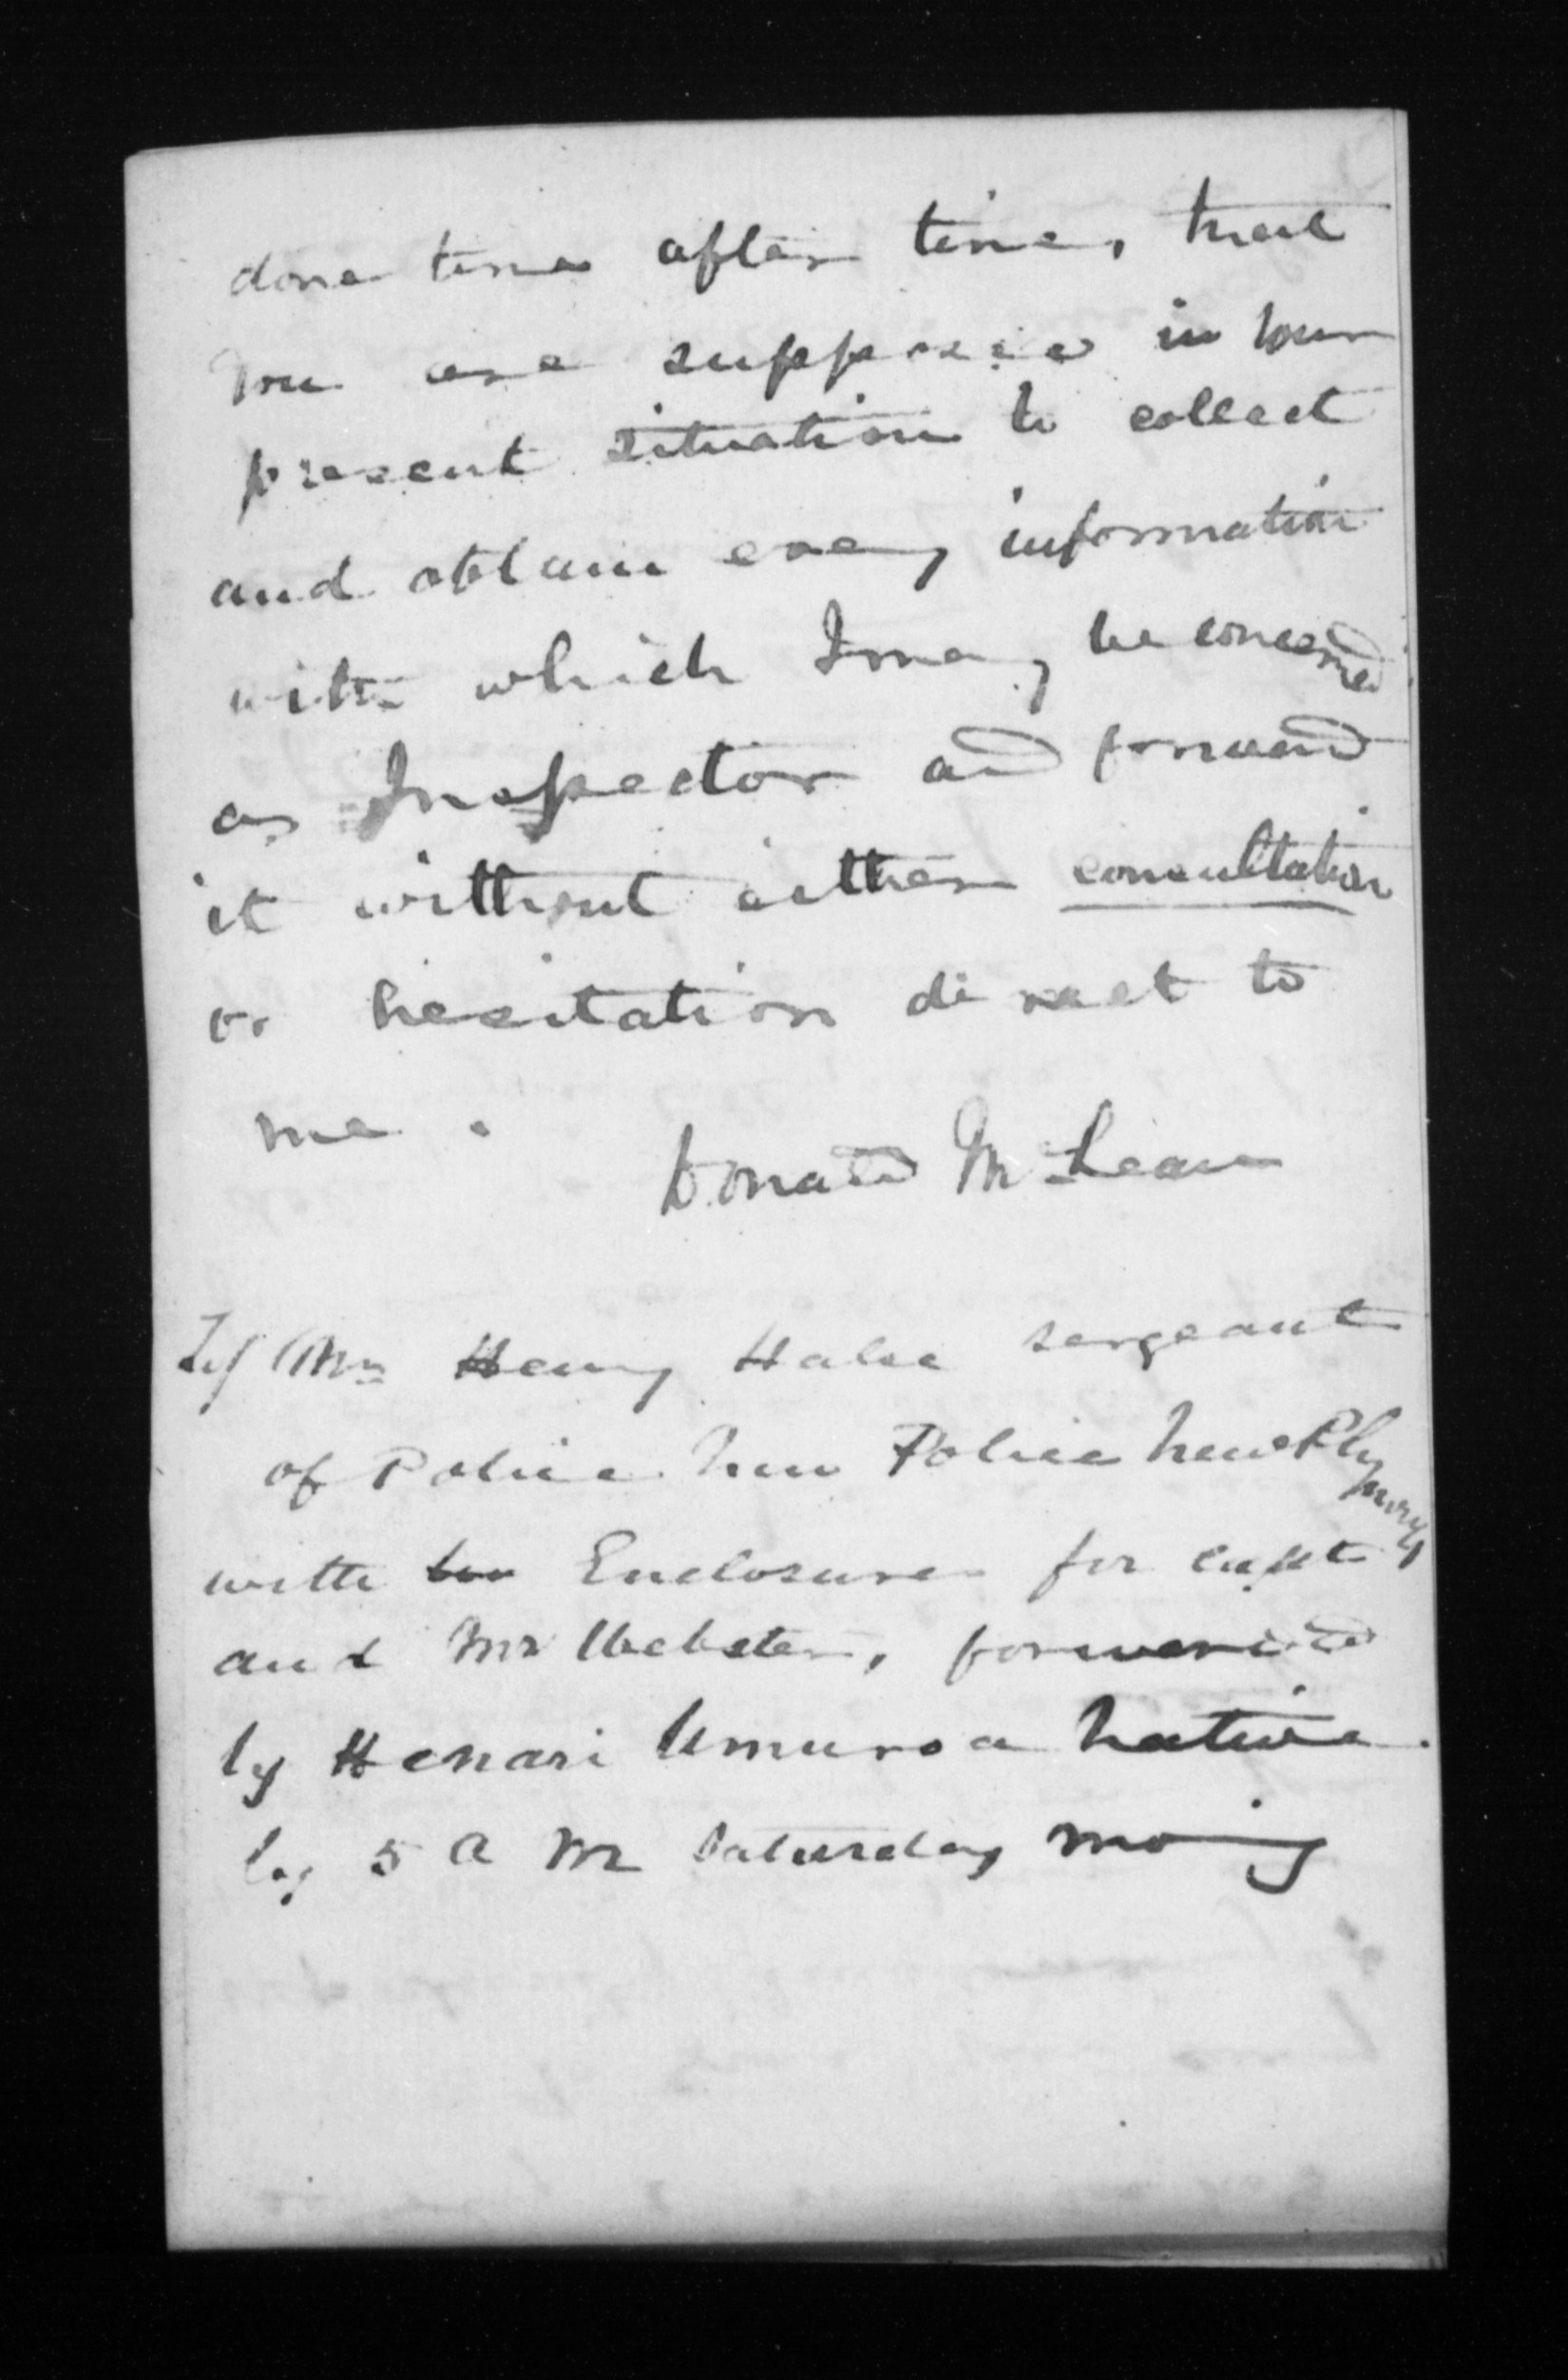 done time after time, that
you are supposed in your
present situation to collect
and obtain every information
with which I may be concerned
as Inspector and forward
it without either consultation
or hesitation direct to
me.
Donald McLean
Mr Henry Halse sergeant
of Police. New Police New Plymouth
with Enclosure for Capt
and Mr Webster, forwarded
by Henari Umuroa Native.
by 5 A M Saturday morning